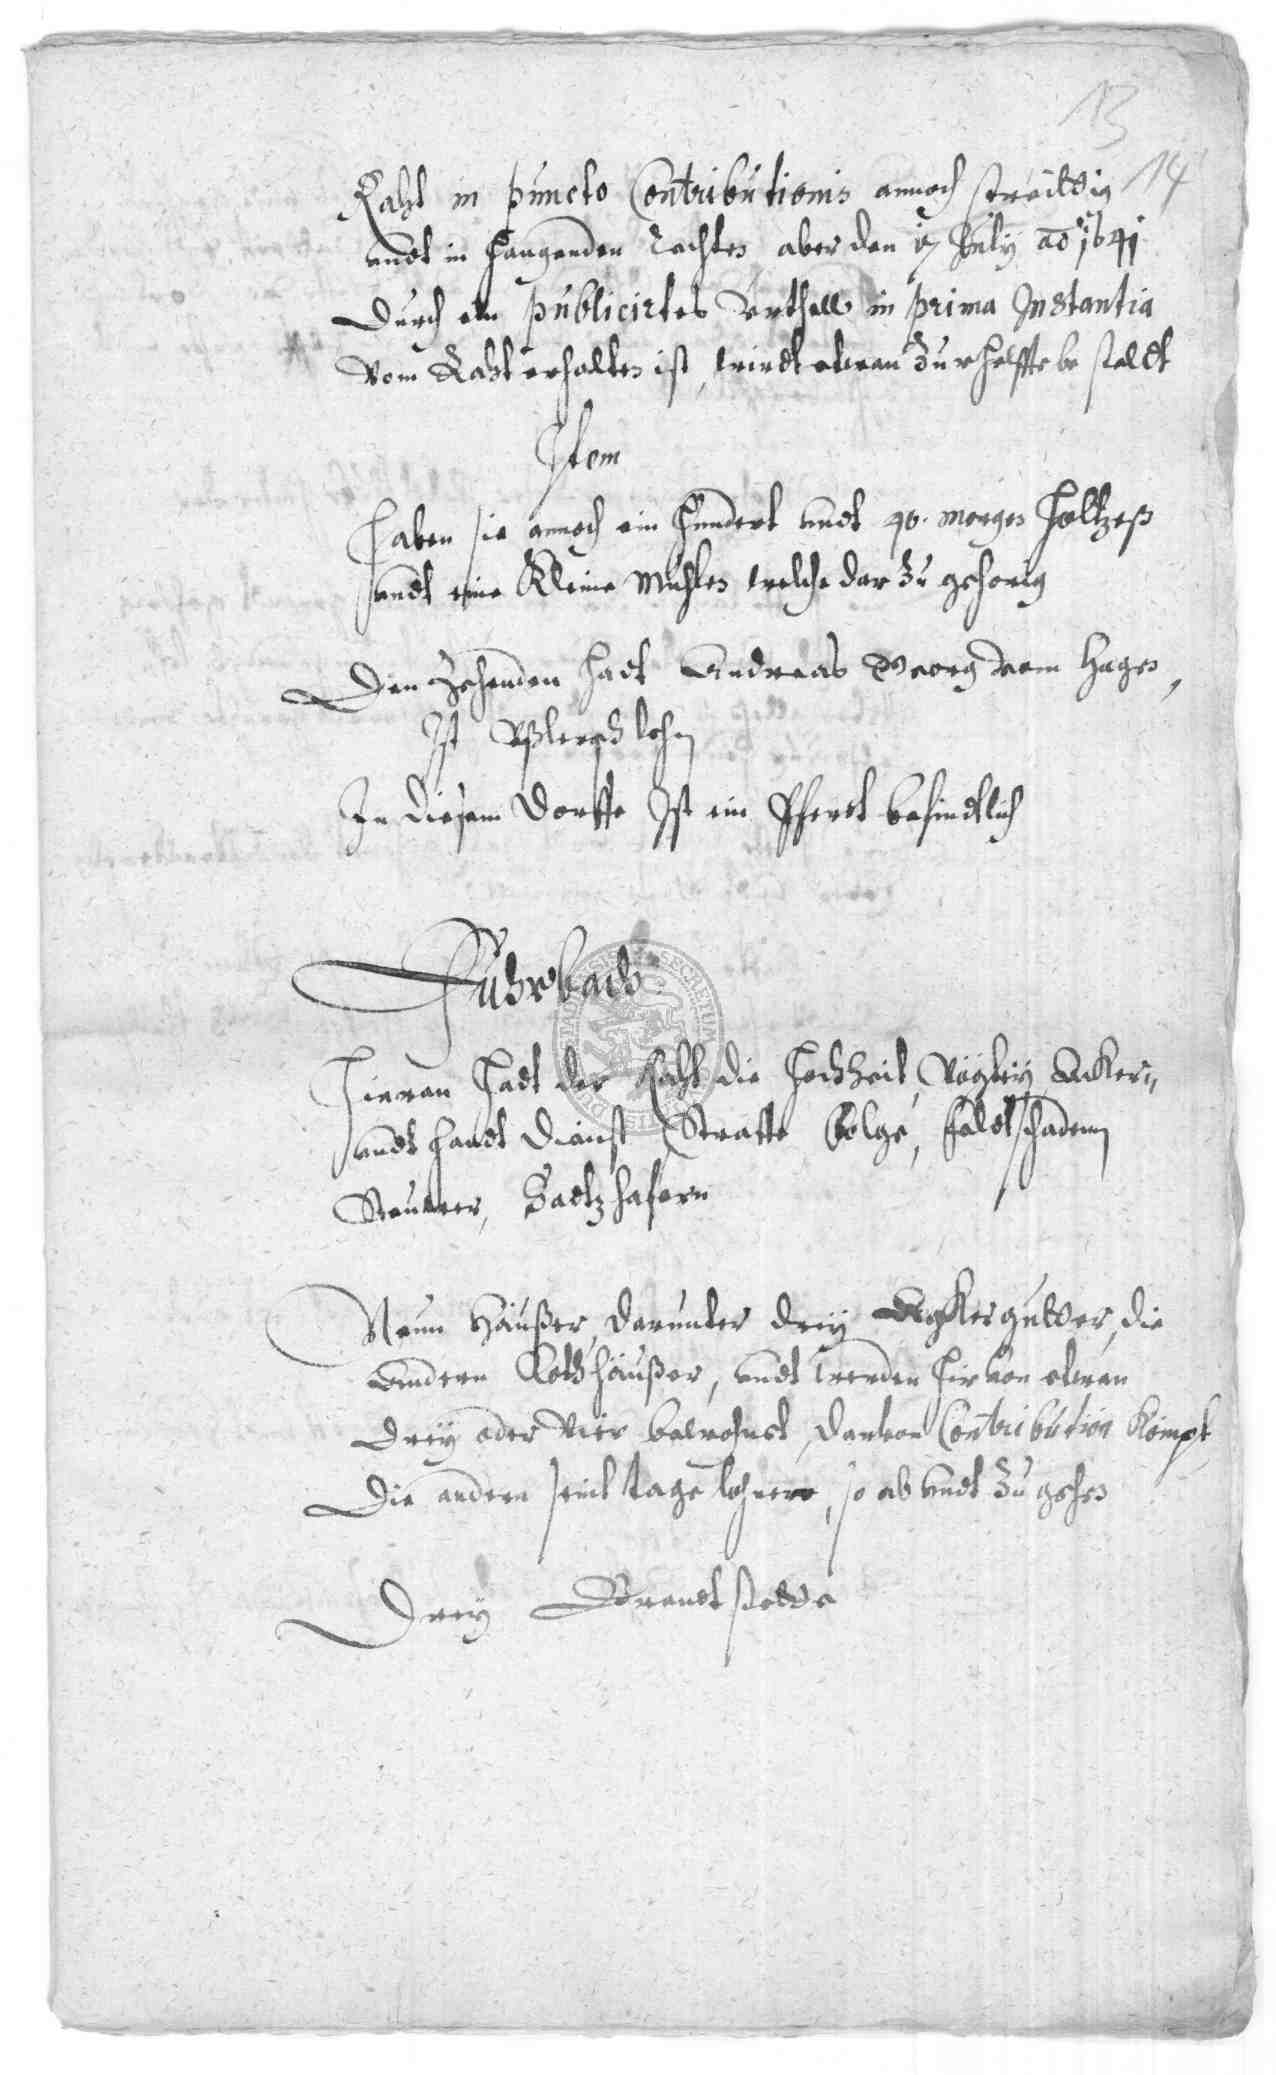 13
14
Raht in puncto Contributionis annoch streittig
undt in hangenden rechten aber den 17 July ao 1641
Durch ein publicirtes Urthell in prima Instantia
Vom Raht erhalten ist, wirdt etwan zur helffte besteldt
Item
Haben sie annoch ein Hundert undt 40. morgen Holtzeß
undt eine Kleine Muhlen welche dar zu gehorig
Den Zehenden hadt Andreas Georg vom Hagen,
Ist lehn
In diesem Dorffe Ist ein Pferdt befindtlich
Fuhrbach
Hieran hadt der Raht die Hochheit, Vogtey Acker„
undt handt Dienst Straffe Folge, feldtschadenn
Steuwer, hafern
Neun Häußer, darunter drey Ackergutter, die
andern Kothhäußer, undt werden hirvon etwan
Drey oder Vier bewohnet, davon Contribution kömpt
Die andern seint tage lohnere, so ab undt zu gehen
Drey Brandtstette